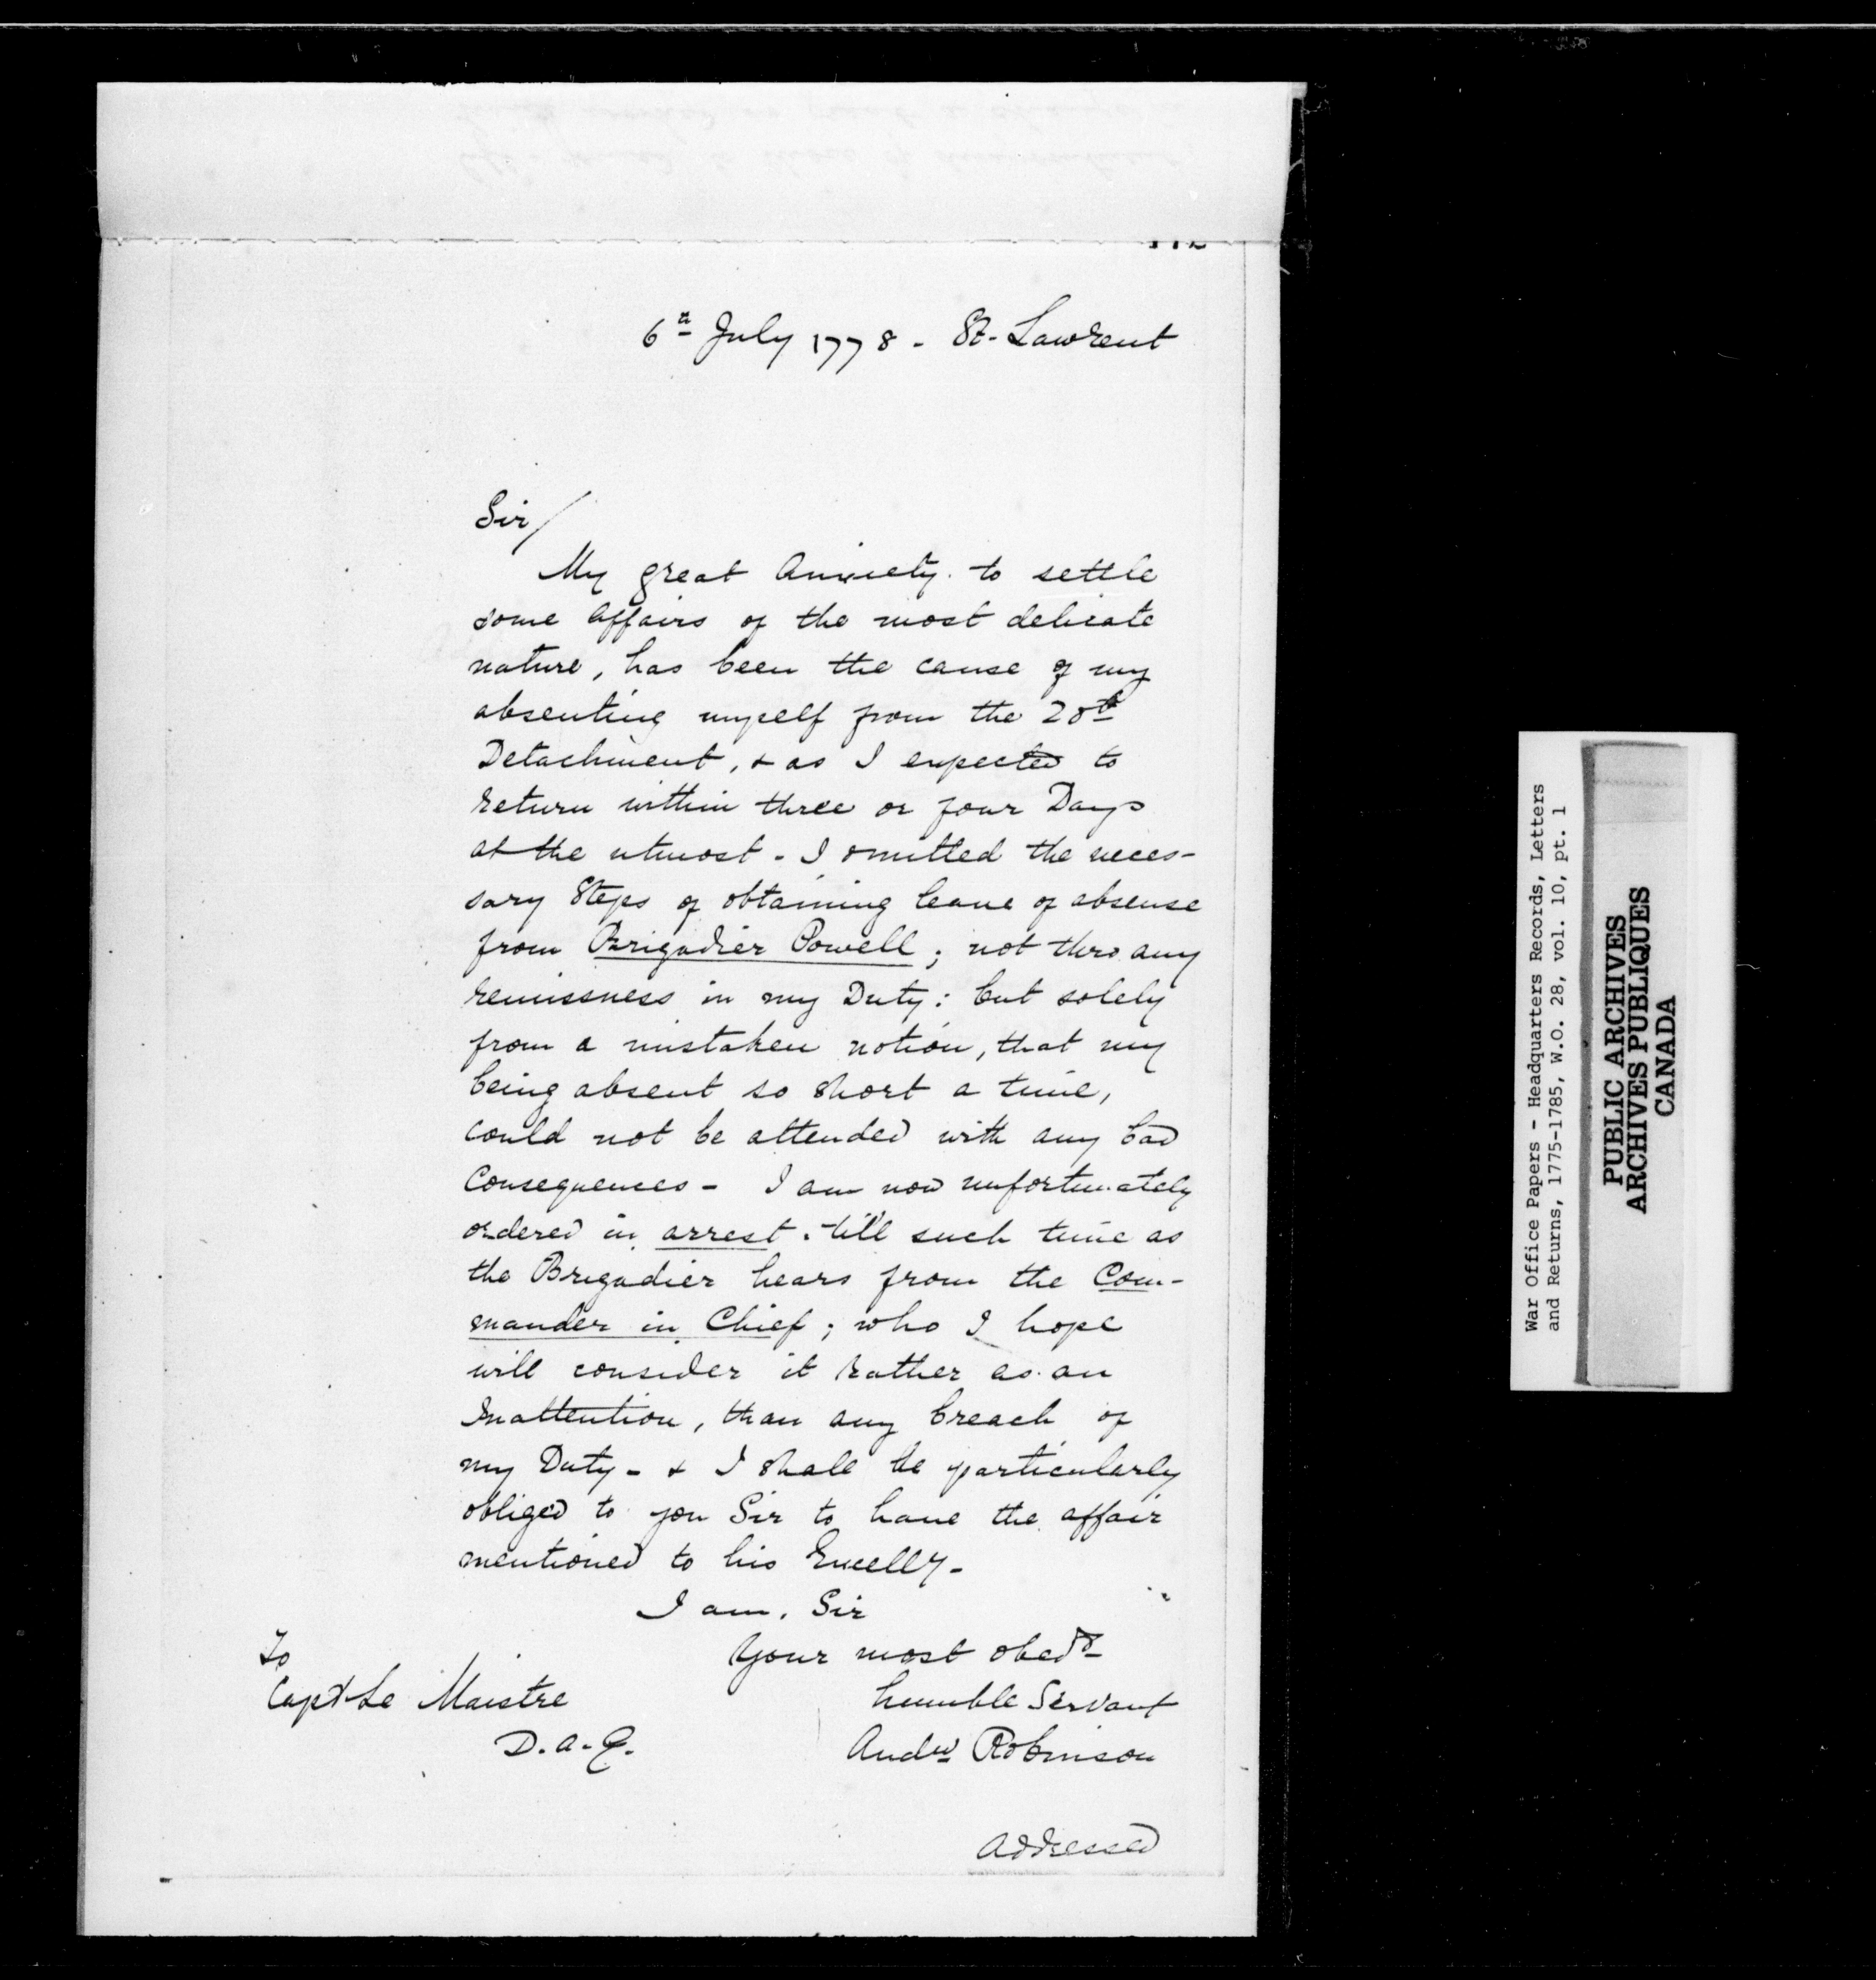 6th July 1778 - St. Lawrent
Sir/
My great Anxiety to settle
some affairs of the most delicate
nature, has been the cause of my
absenting myself from the 20th
Detachment, & as I expected to
return within three or four Days
at the utmost - I omitted the neces-
sary Steps of obtaining leave of absense
from Brigadier Powell; not thro any
remissness in my Duty: but solely
from a mistaken notion, that my
being absent so short a time,
could not be attended with any bad
Consequences - I am now unfortunately
ordered in arrest. till such time as
the Brigadier hears from the Com-
mander in Chief; who I hope
will consider it rather as an
Inattention, than any breach of
my Duty - & I shall be particularly
obliged to you Sir to have the affair
mentioned to his Excelly -
I am, Sir
Your most obedt
humble Servant
Andw Robinson
To
Capt Le Maistre
D. A. G.
Addressed
War Office Papers - Headquarters Records, Letters
and Returns, 1775-1785, W.O. 28, vol. 10, pt. 1
PUBLIC ARCHIVES
ARCHIVES PUBLIQUES
CANADA